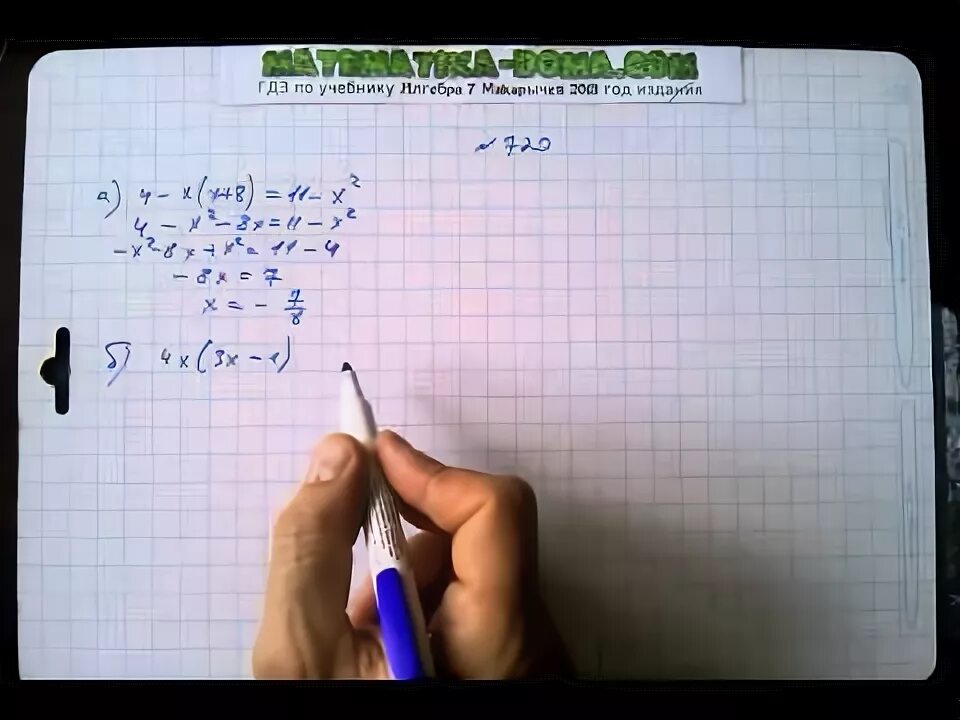 MATEMATIKA-DOMA.COM
ГДЗ по учебнику Алгебра 7 Макарычев год издания
№720
а) 4 - x(x+8) = 11 - x²
4 - x² - 8x = 11 - x²
-x² - 8x + x² = 11 - 4
- 8x = 7
x = - 7/8
б) 4x(3x - 1)